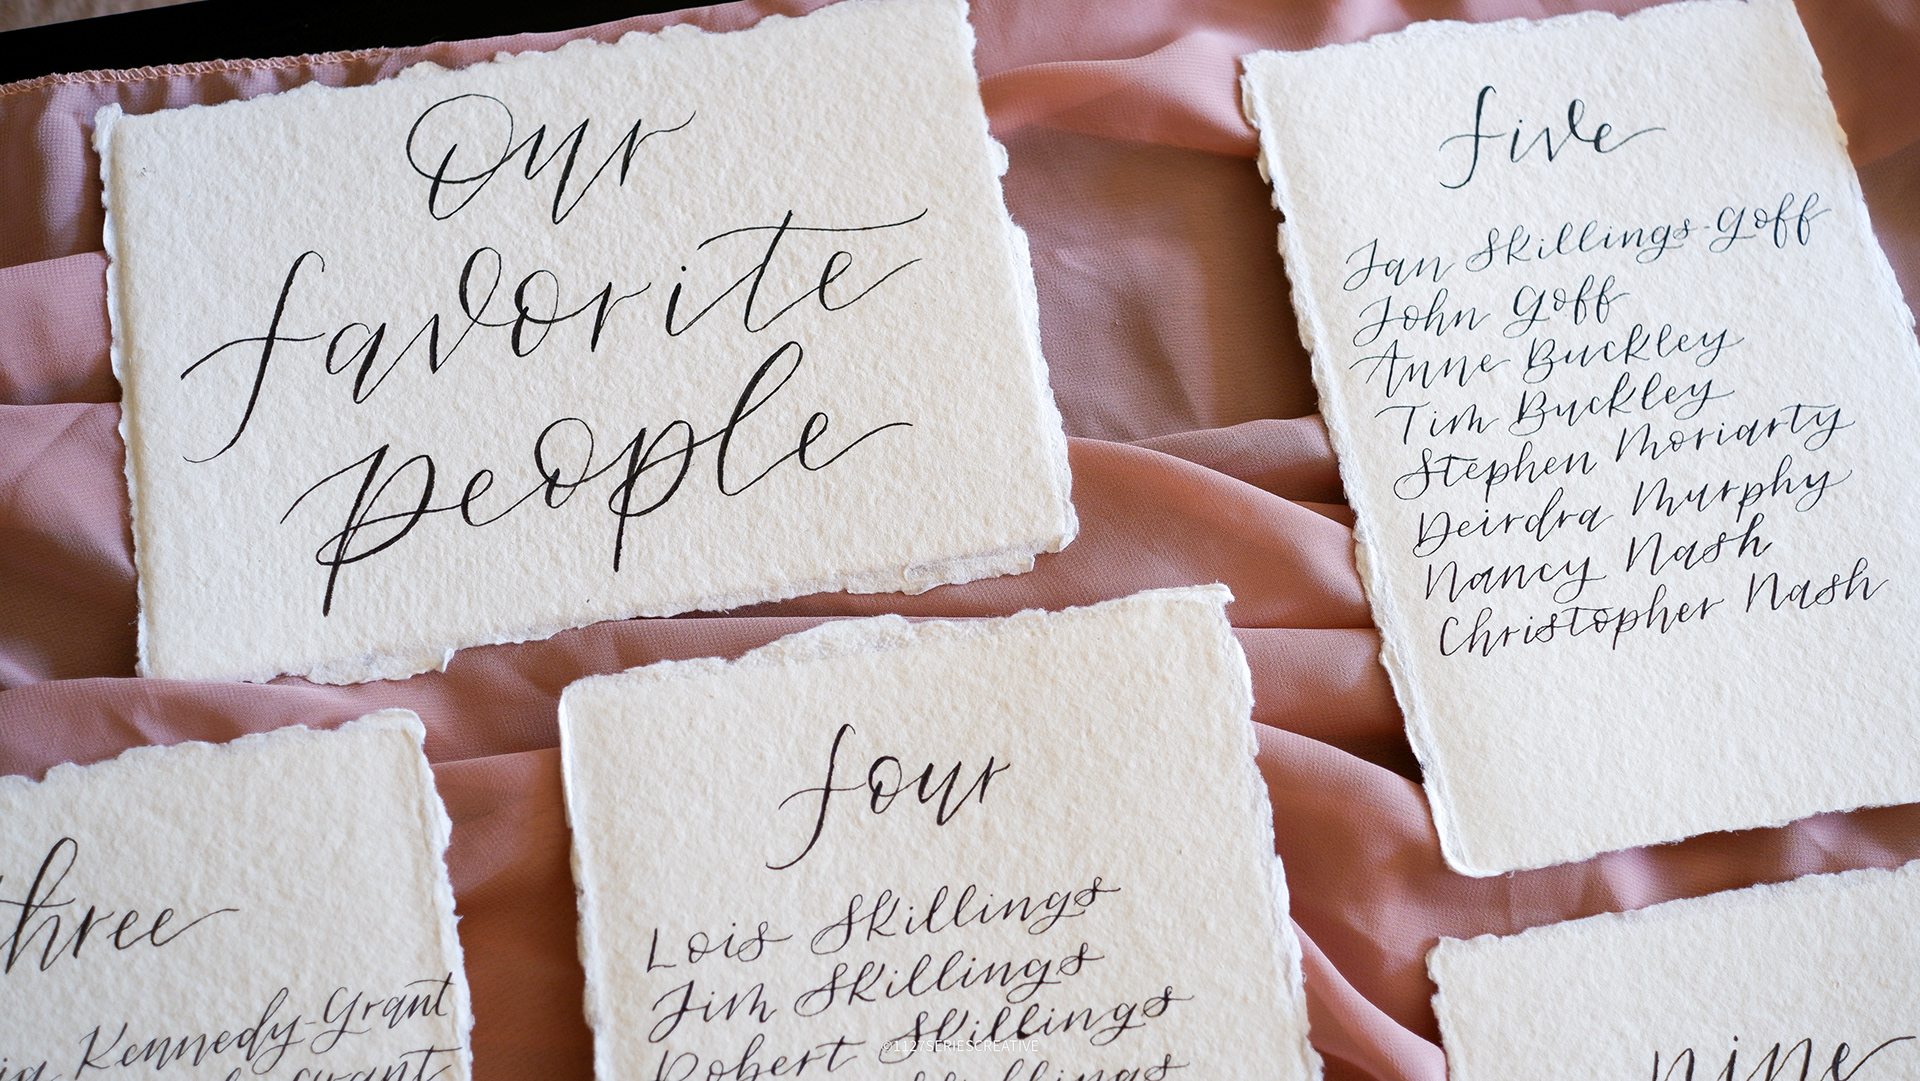 Our
favorite
people
five
Jan Skillings-Goff
John Goff
Anne Buckley
Tim Buckley
Stephen Moriarty
Deirdra Murphy
Nancy Nash
Christopher Nash
three
Kennedy-Grant
Grant
four
Lois Skillings
Jim Skillings
Robert Skillings
Skillings
nine
©1127SERIESCREATIVE